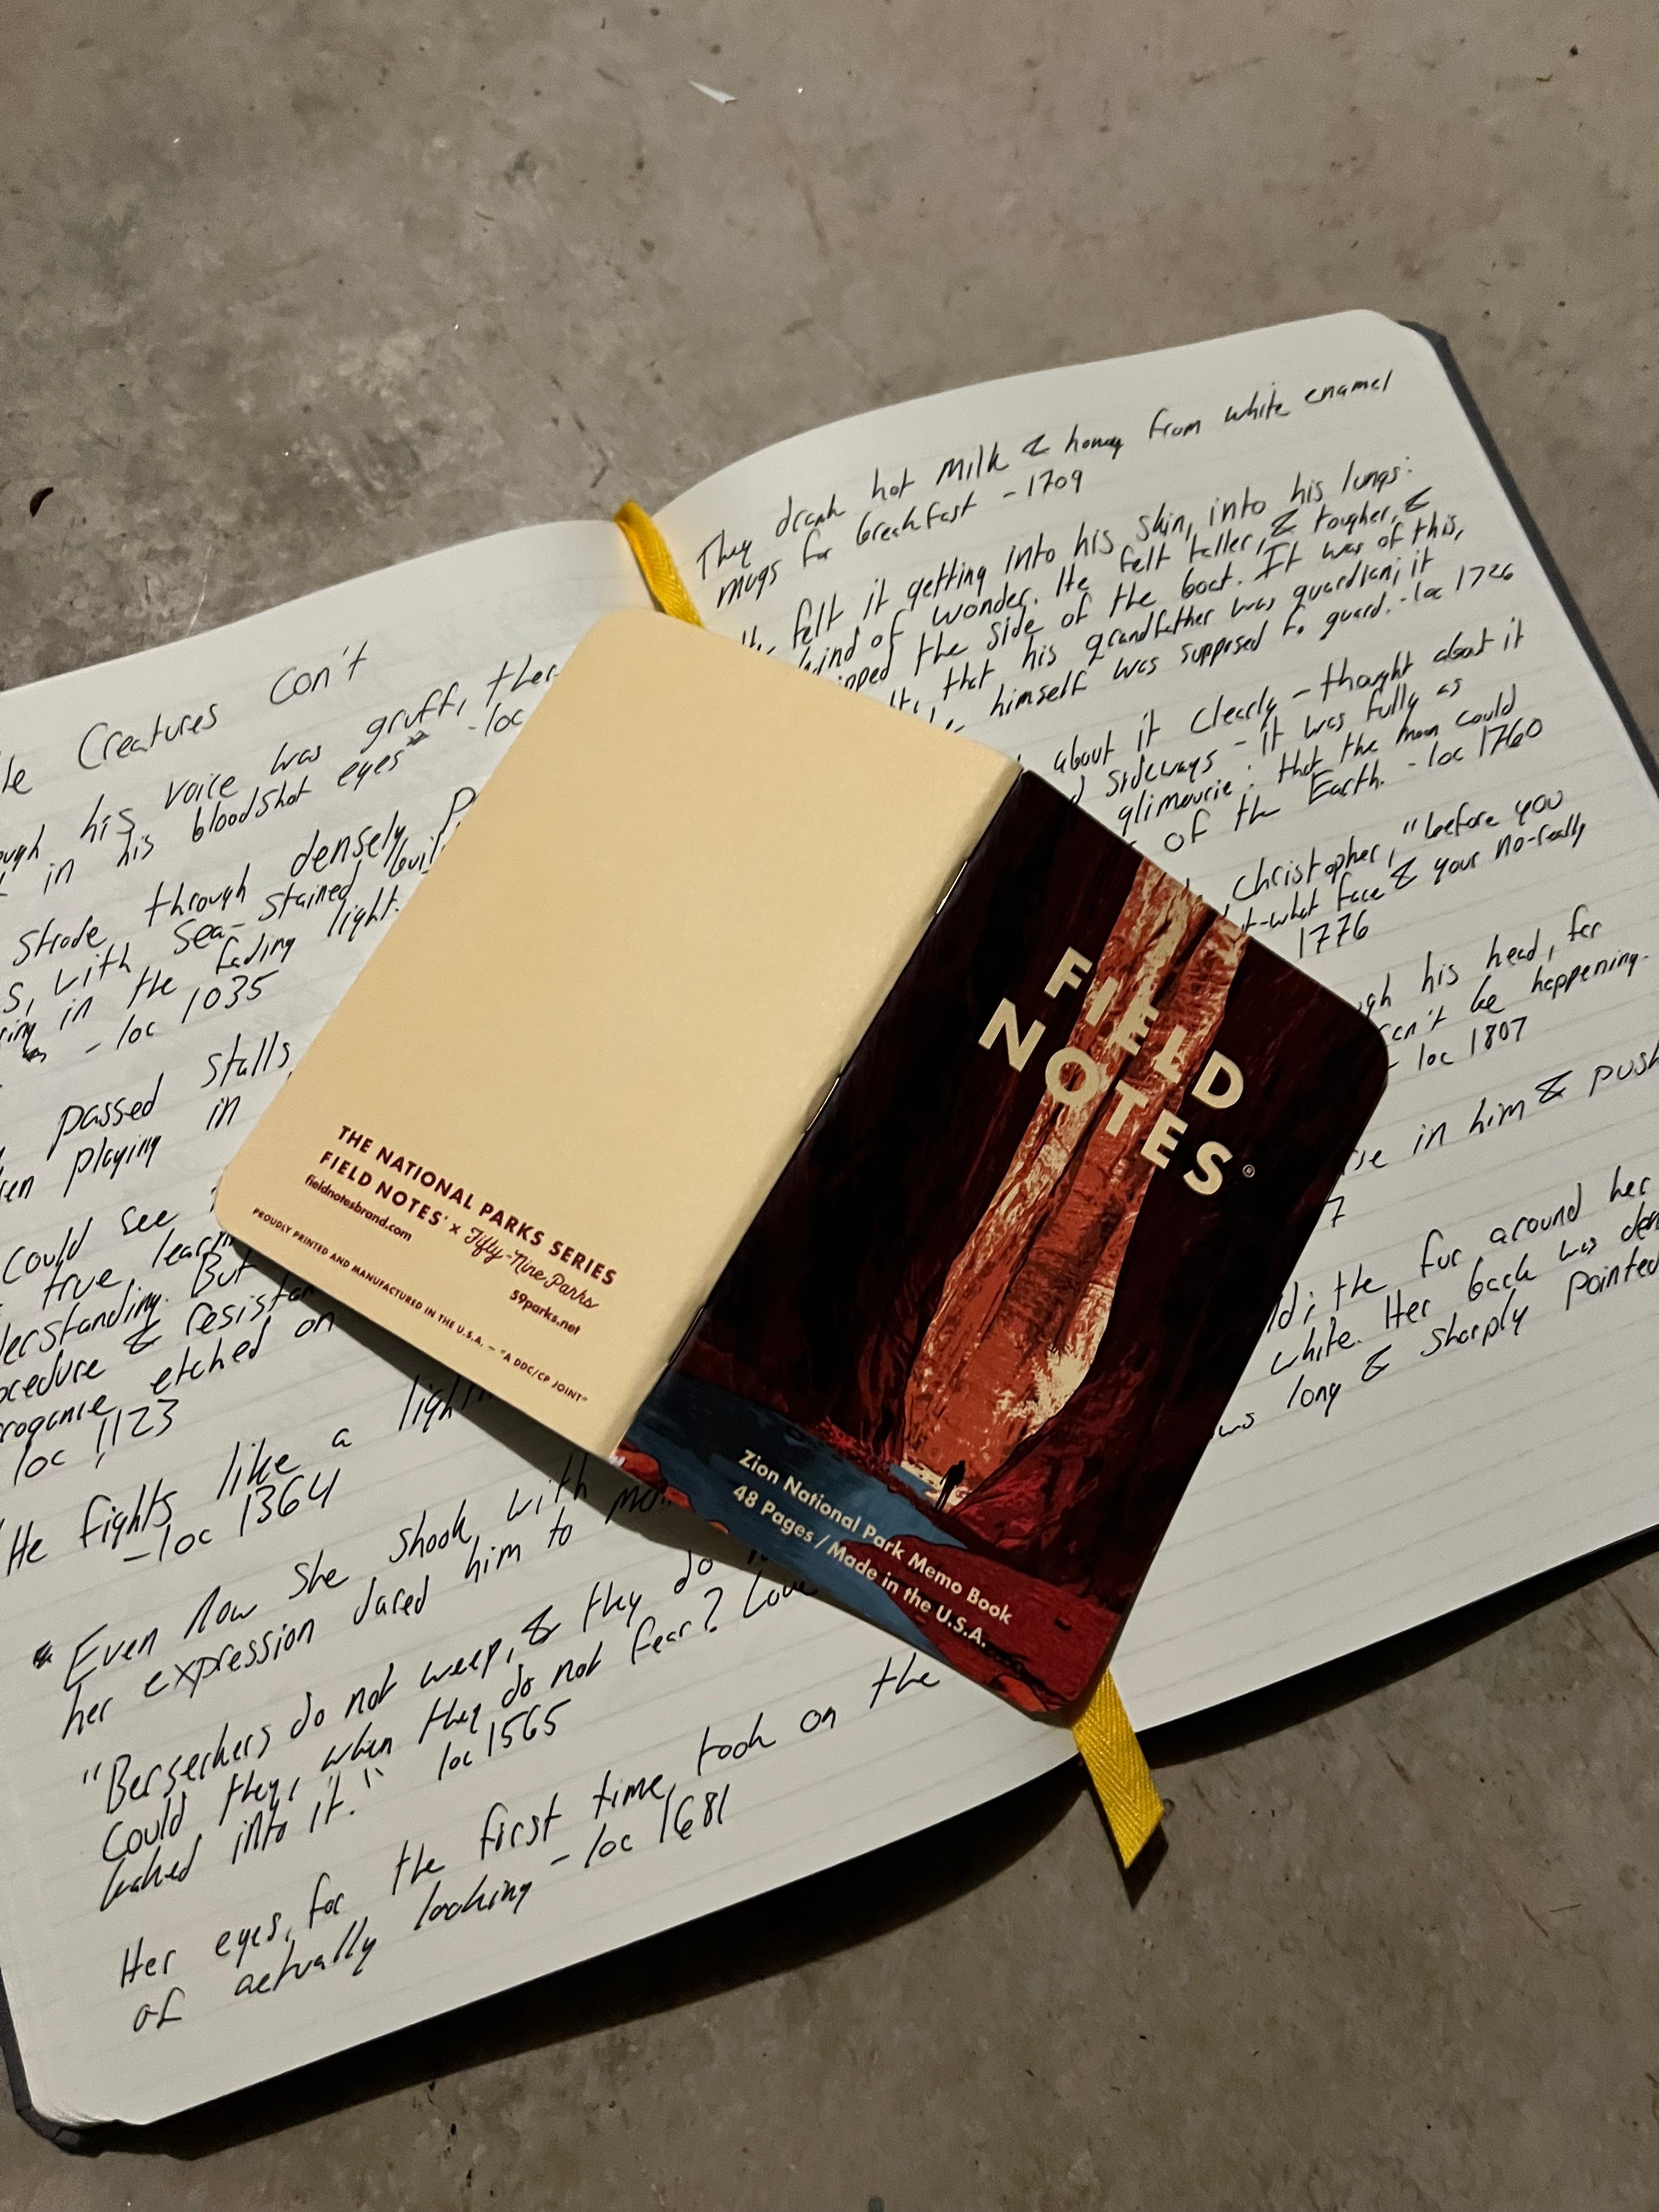 Creatures Con't
his voice was gruff, ther
in his bloodshot eyes" -loc
strode through densely
s, with sea-stained
in the fading light.
- loc 1035
passed stalls,
playing in
could see
true
derstanding. But
ocedure & resistan
rogance etched on
loc 1123
He fights like a light
-loc 1364
Even now she shook with
her expression dared him to
"Berserkers do not weep, & they do
Could they, when they do not fear? Love
leaked into it." loc 1565
Her eyes, for the first time, took on the
of actually looking - loc 1681
They drank hot milk & honey from white enamel
mugs for breakfast - 1709
felt it getting into his skin, into his lungs:
kind of wonder. He felt taller, & tougher, &
pped the side of the boat. It was of this,
that his grandfather was guardian; it
himself was supposed to guard. - loc 1726
about it clearly - thought about it
sideways - it was fully as
glimourie: that the moon could
of the Earth. - loc 1760
Christopher, "before you
t-what face & your no-really
1776
ugh his head, for
can't be happening.
- loc 1807
in him & push
7
the fur around her
white. Her back was
long & sharply pointed
THE NATIONAL PARKS SERIES
FIELD NOTES® × Fifty-Nine Parks
fieldnotesbrand.com
59parks.net
PROUDLY PRINTED AND MANUFACTURED IN THE U.S.A. — "A DDC/CP JOINT"
FIELD
NOTES®
Zion National Park Memo Book
48 Pages / Made in the U.S.A.